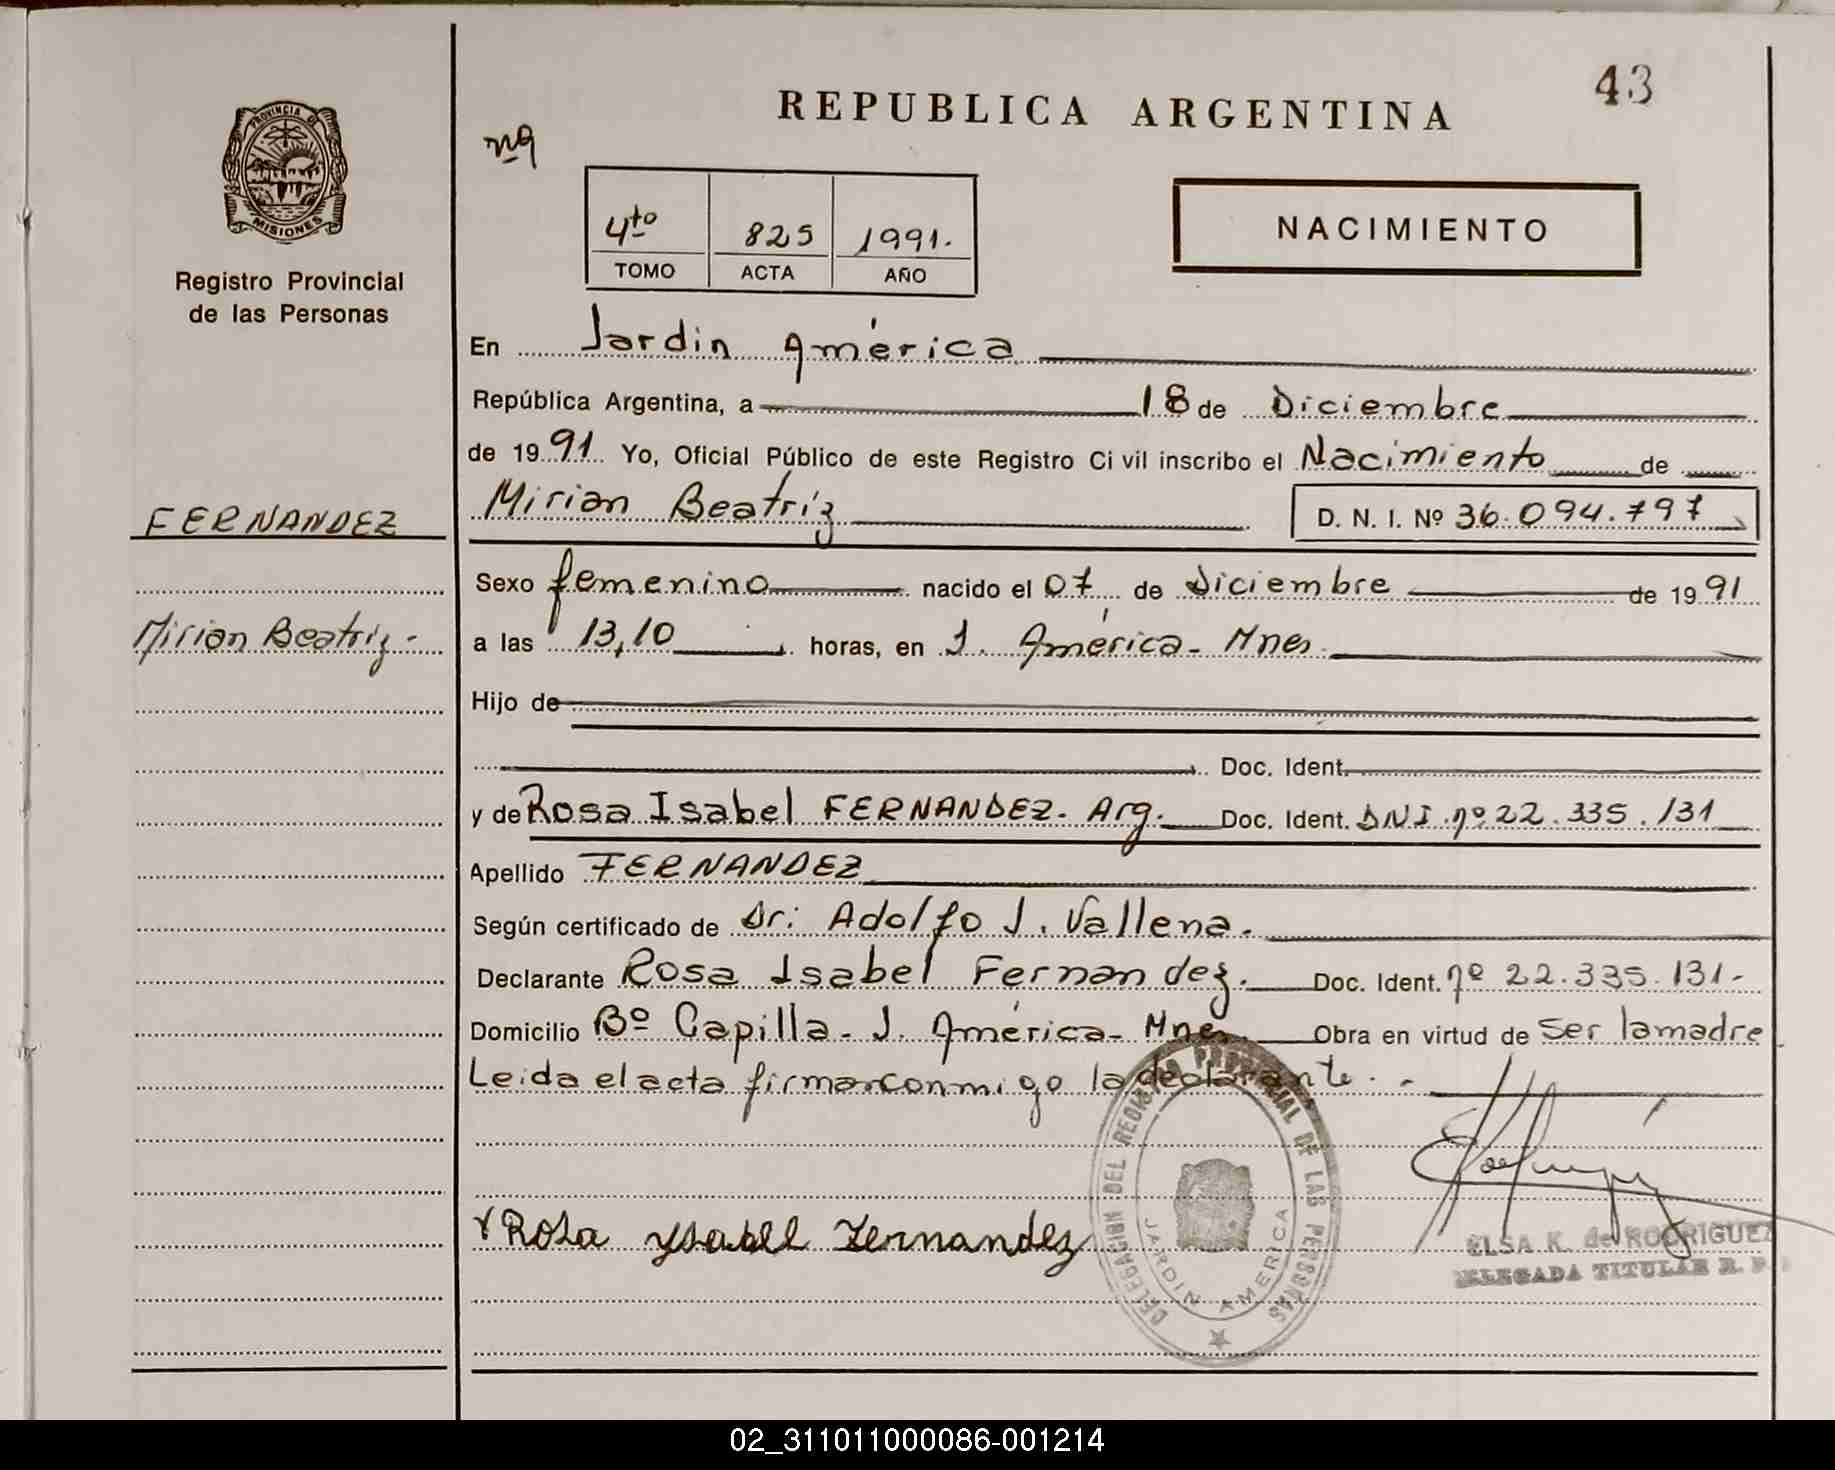 43
REPUBLICA ARGENTINA
PROVINCIA DE
MISIONES
Registro Provincial
de las Personas
nº
4to 825 1991.
TOMO ACTA AÑO
NACIMIENTO
En Jardin América
República Argentina, a 18 de Diciembre
de 1991 Yo, Oficial Público de este Registro Civil inscribo el Nacimiento de
Mirian Beatríz D. N. I. Nº 36.094.797
FERNANDEZ
Mirian Beatriz-
Sexo femenino nacido el 07 de Diciembre de 1991
a las 13,10 horas, en J. América- Mnes.
Hijo de
Doc. Ident.
y de Rosa Isabel FERNANDEZ- Arg. Doc. Ident. DNI nº 22.335.131
Apellido FERNANDEZ
Según certificado de Dr: Adolfo J. Vallena.
Declarante Rosa Isabel Fernandez. Doc. Ident. nº 22.335.131-
Domicilio Bº Capilla- J. América- Mnes Obra en virtud de ser la madre
Leida el acta firmar conmigo la declarante. -
DELEGACION DEL REGISTRO PROVINCIAL DE LAS PERSONAS
JARDIN AMERICA
Rosa Ysabel Fernandez
ELSA K. de RODRIGUEZ
DELEGADA TITULAR R. P.
02_311011000086-001214